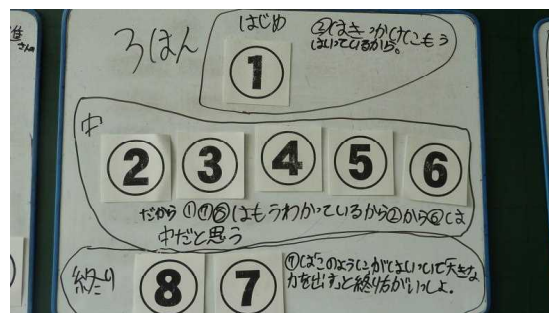 3はん
はじめ
①
②はきっかけでもう
はいっているから。
中
② ③ ④ ⑤ ⑥
だから①⑦⑧はもうわかっているから②から⑥は
中だと思う
終わり
⑧ ⑦
⑦は「このように」がはいいて「大きな
力を出す」と終り方がいっしょ。